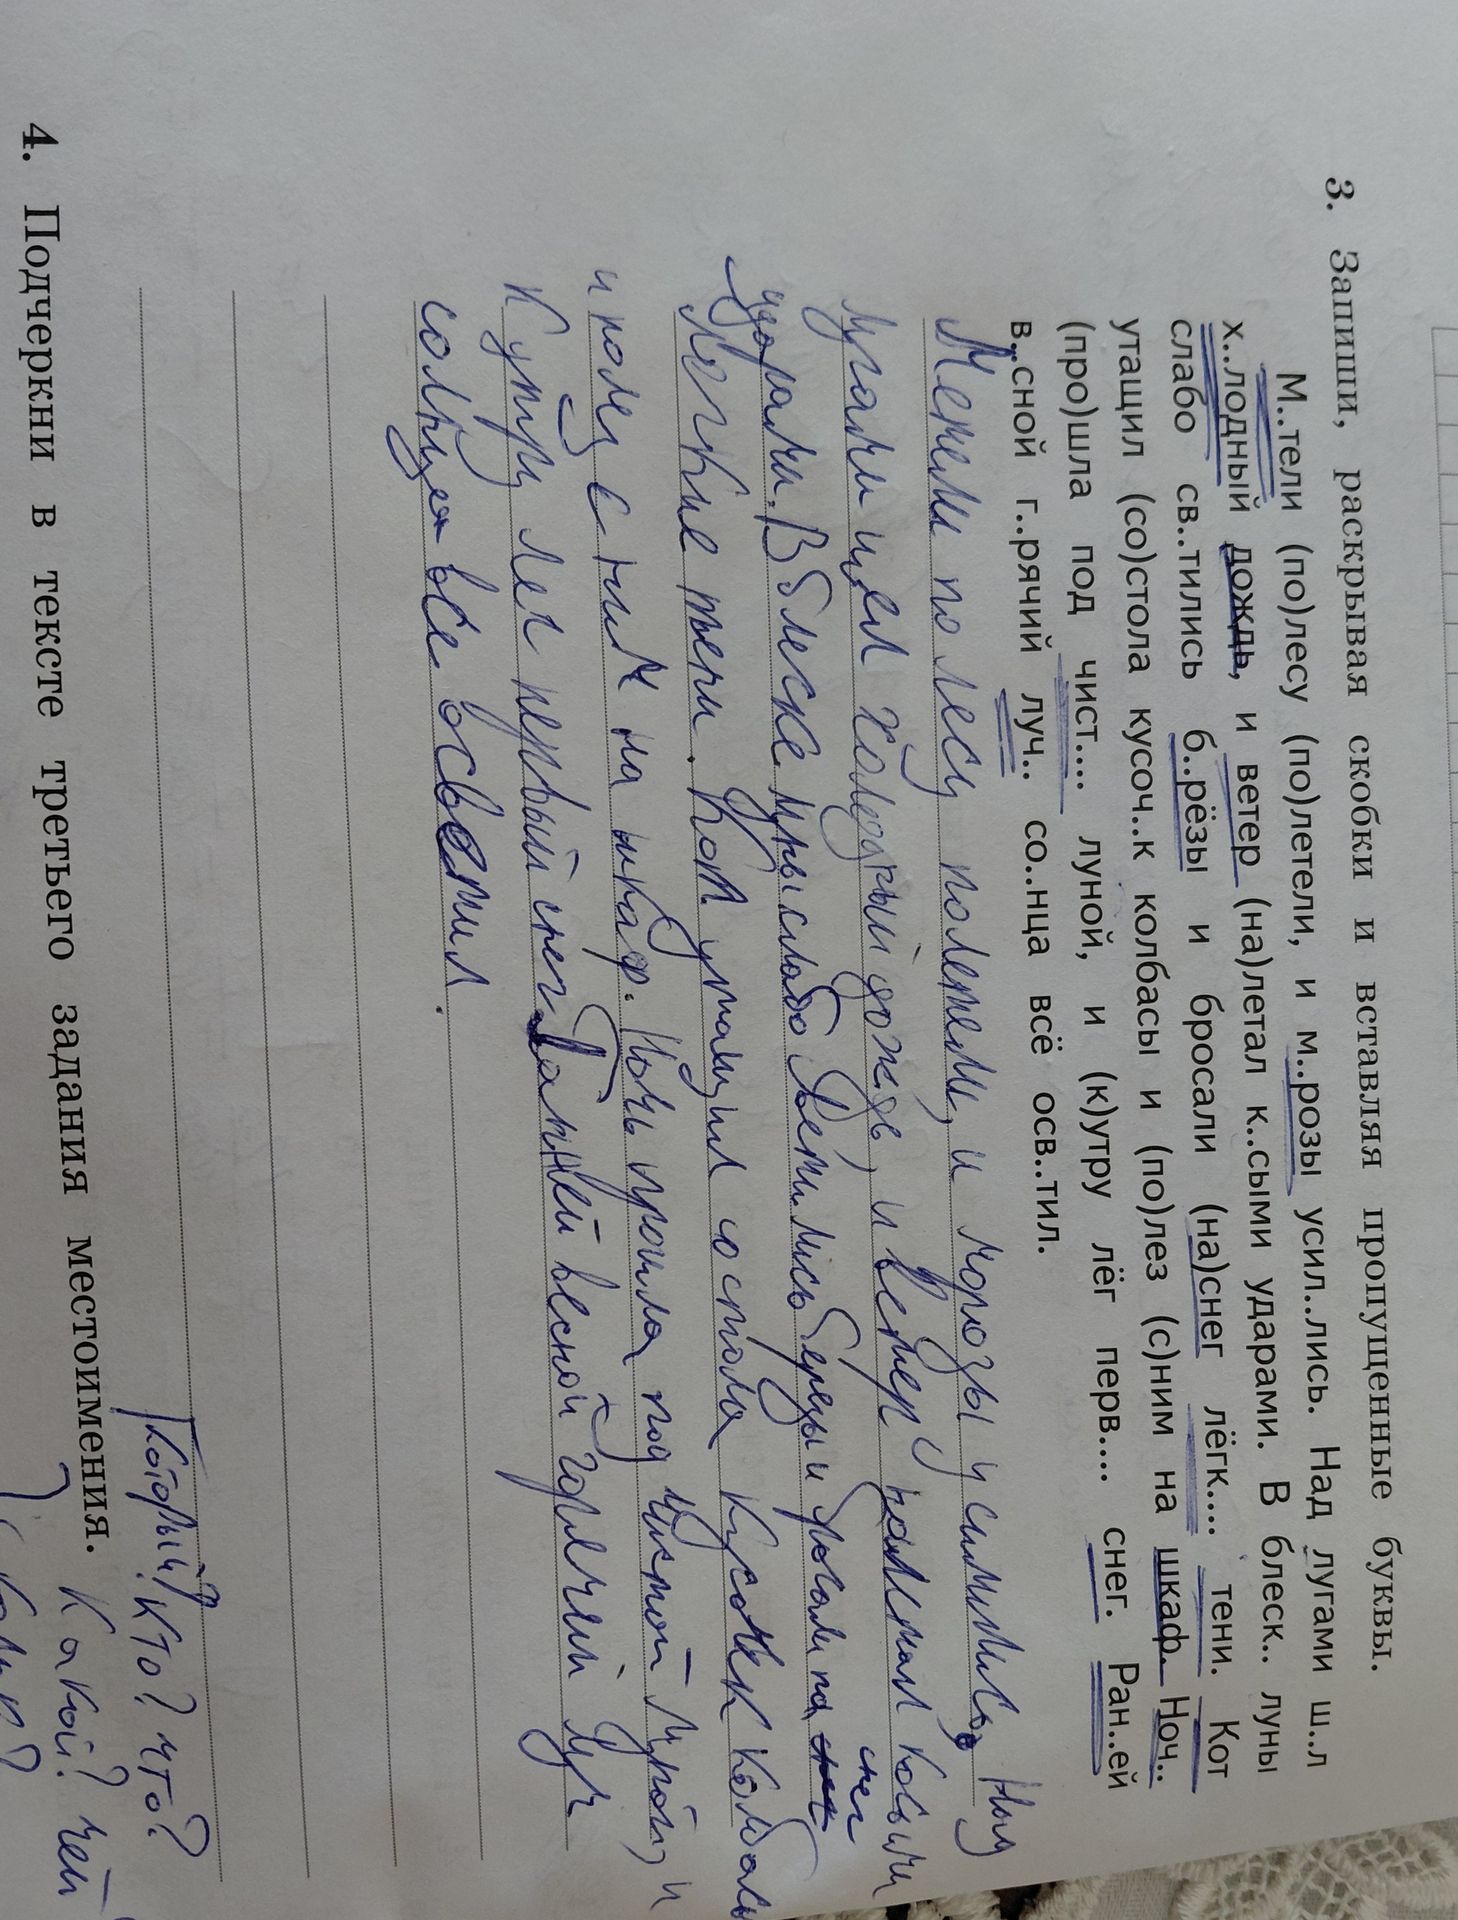 3. Запиши, раскрывая скобки и вставляя пропущенные буквы.
М..тели (по)лесу (по)летели, и м..розы усил..лись. Над лугами ш..л
х..лодный дождь, и ветер (на)летал к..сыми ударами. В блеск.. луны
слабо св..тились б..рёзы и бросали (на)снег лёгк.... тени. Кот
утащил (со)стола кусоч..к колбасы и (по)лез (с)ним на шкаф. Ноч..
(про)шла под чист.... луной, и (к)утру лёг перв.... снег. Ран..ей
в..сной г..рячий луч.. со..нца всё осв..тил.
Метели по лесу полетели, и морозы усилились. Над
лугами шел холодный дождь, и ветер налетал косыми
ударами. В блеске луны слабо светились березы и бросали на снег
Легкие тени. Кот утащил со стола кусочек колбасы
и полез с ним на шкаф. Ночь прошла под чистой луной, и
к утру лег первый снег. Ранней весной горячий луч
солнца все осветил.
4. Подчеркни в тексте третьего задания местоимения.
Который? Кто? что?
Какой? чей